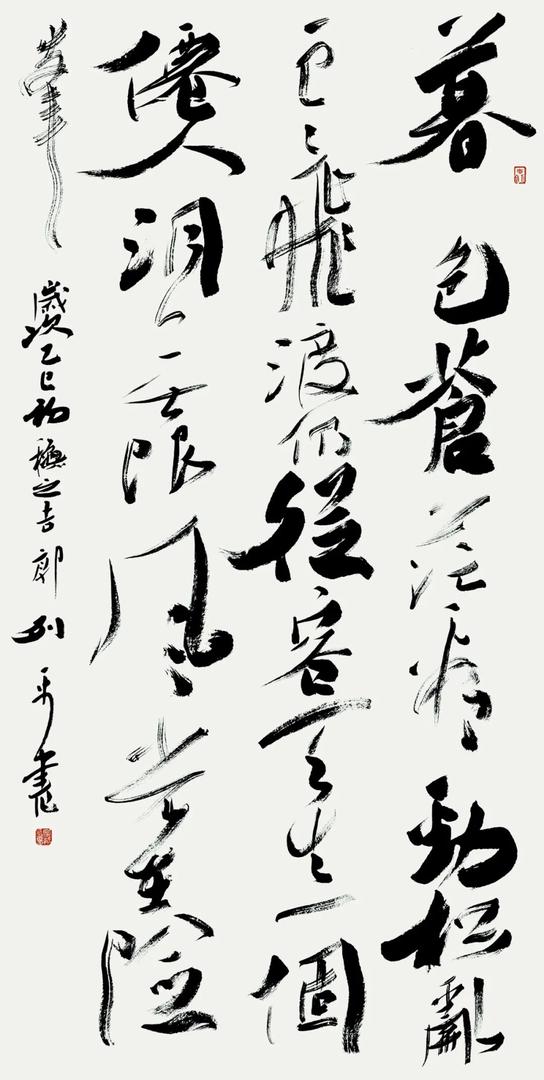 暮色蒼茫看勁松亂
雲飛渡仍從容天生一個
僊人洞無限風光在險
峯
歲次乙巳初秋之吉郭列平書